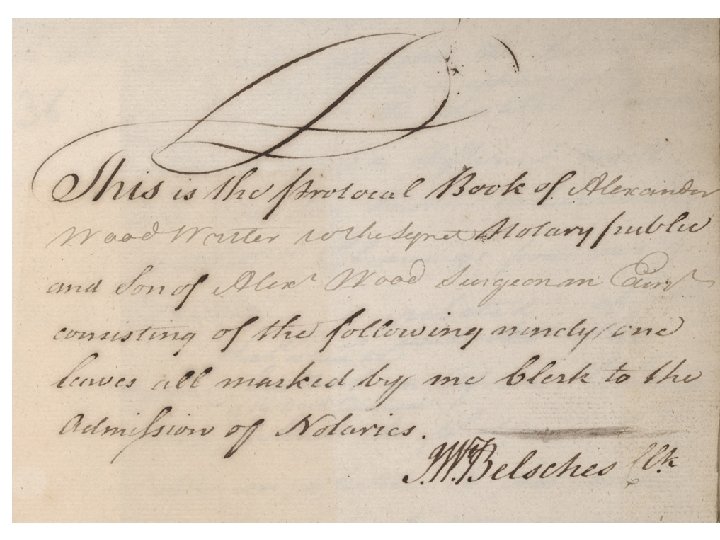 This is the Protocal Book of Alexander
Wood Writer to the Signet Notary publie
and Son of Alexr Wood Surgeon in Edinr
consisting of the following ninety one
leaves all marked by me Clerk to the
Admission of Notaries.
J.W. Belsches Clk